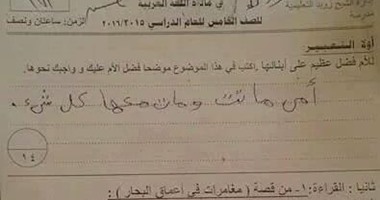 إدارة الشيخ زويد التعليمية
فى مادة اللغة العربية
للصف الخامس للعام الدراسي ٢٠١٦/٢٠١٥
الزمن: ساعتان ونصف
أولا التعبير
للأم فضل عظيم على أبنائها، اكتب فى هذا الموضوع موضحا فضل الأم عليك و واجبك نحوها.
أمى ماتت ومات معها كل شئ.
١٤
ثانيا : القراءة: ١- من قصة ( مغامرات في أعماق البحار ) :